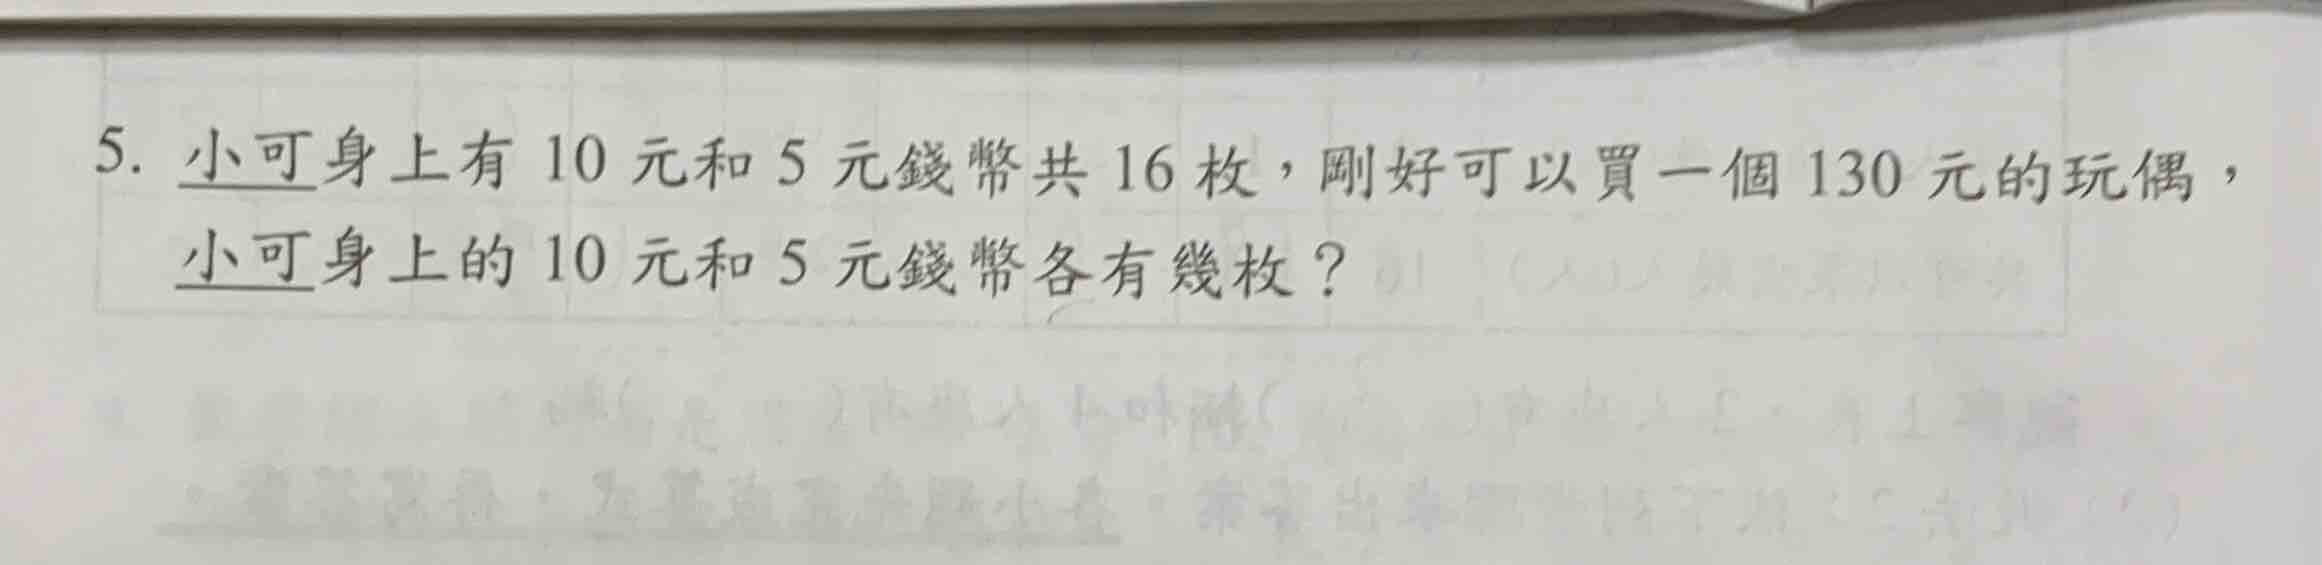 5. 小可身上有 10 元和 5 元錢幣共 16 枚，剛好可以買一個 130 元的玩偶，
小可身上的 10 元和 5 元錢幣各有幾枚？